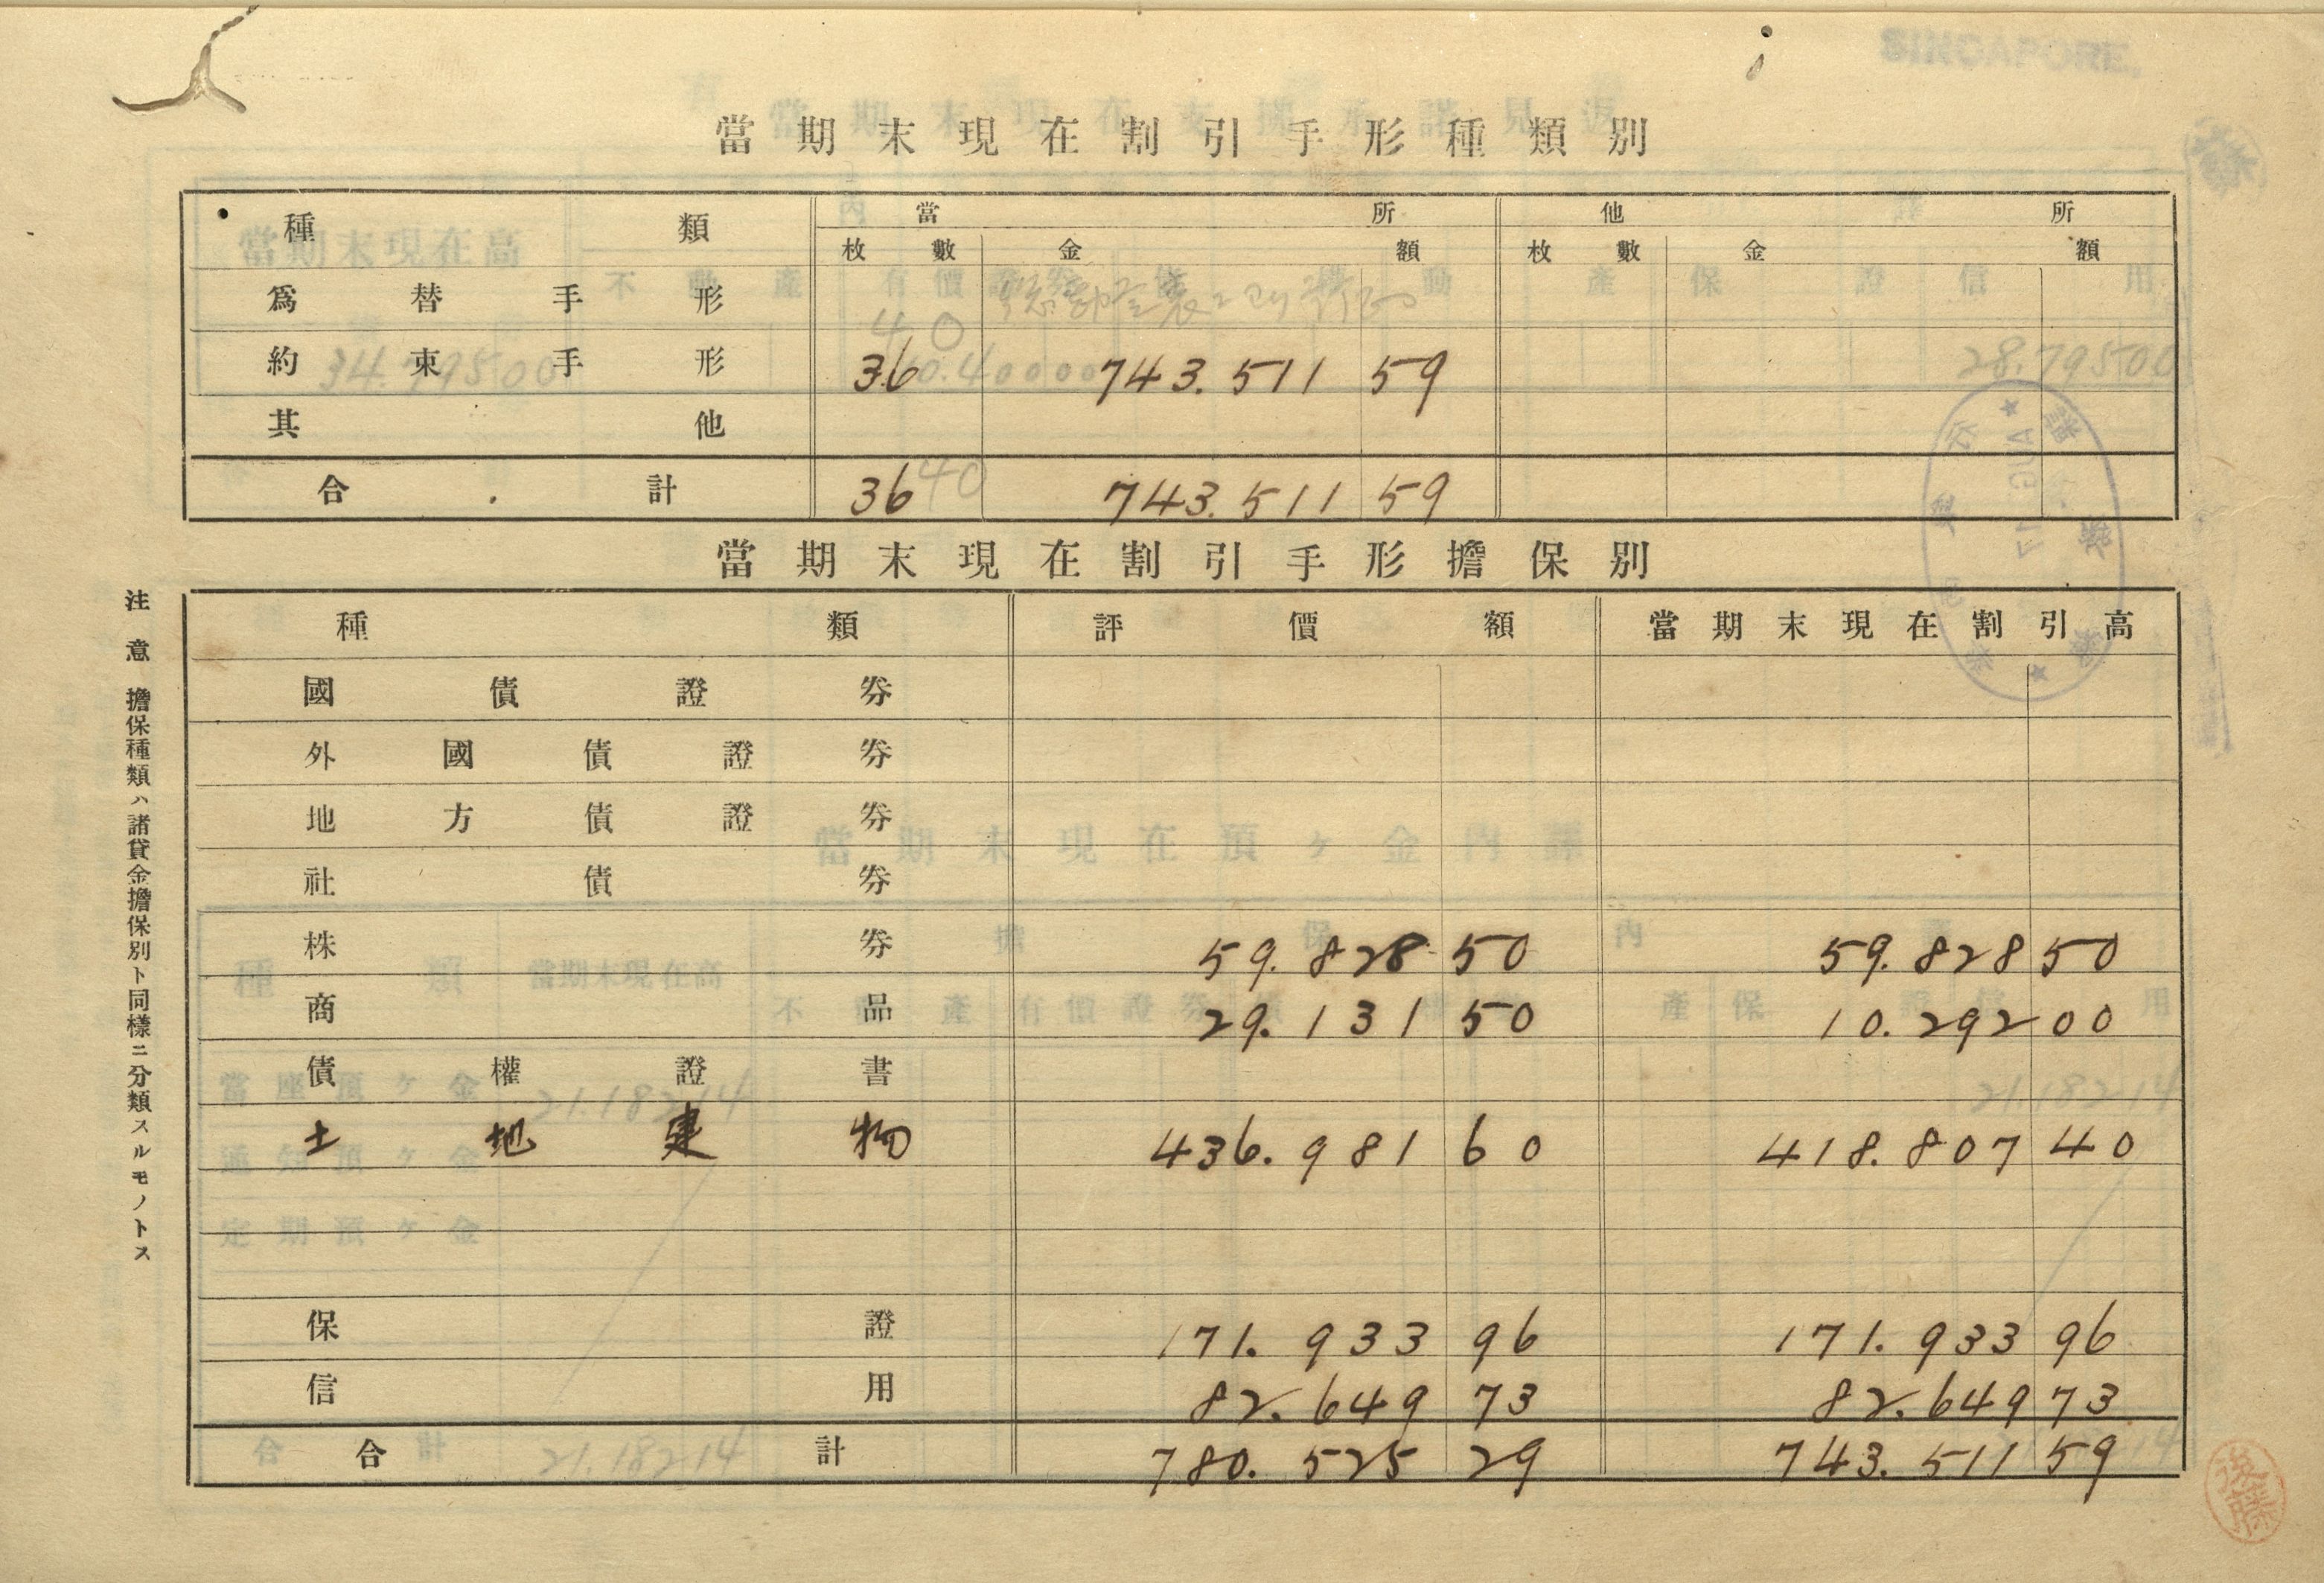 SINGAPORE.
當期末現在割引手形種類別
種類 當所 他所
枚數 金額 枚數 金額
爲替手形
40
約束手形 36 743.511 59
其他
合計 36 40 743.511 59
當期末現在割引手形擔保別
種類 評價額 當期末現在割引高
國債證券
外國債證券
地方債證券
社債券
株券 59.828 50 59.828 50
商品 29.131 50 10.292 00
債權證書
土地建物 436.981 60 418.807 40
保證 171.933 96 171.933 96
信用 82.649 73 82.649 73
合計 780.525 29 743.511 59
注意 擔保種類ハ諸貸金擔保別ト同樣ニ分類スルモノトス
後藤